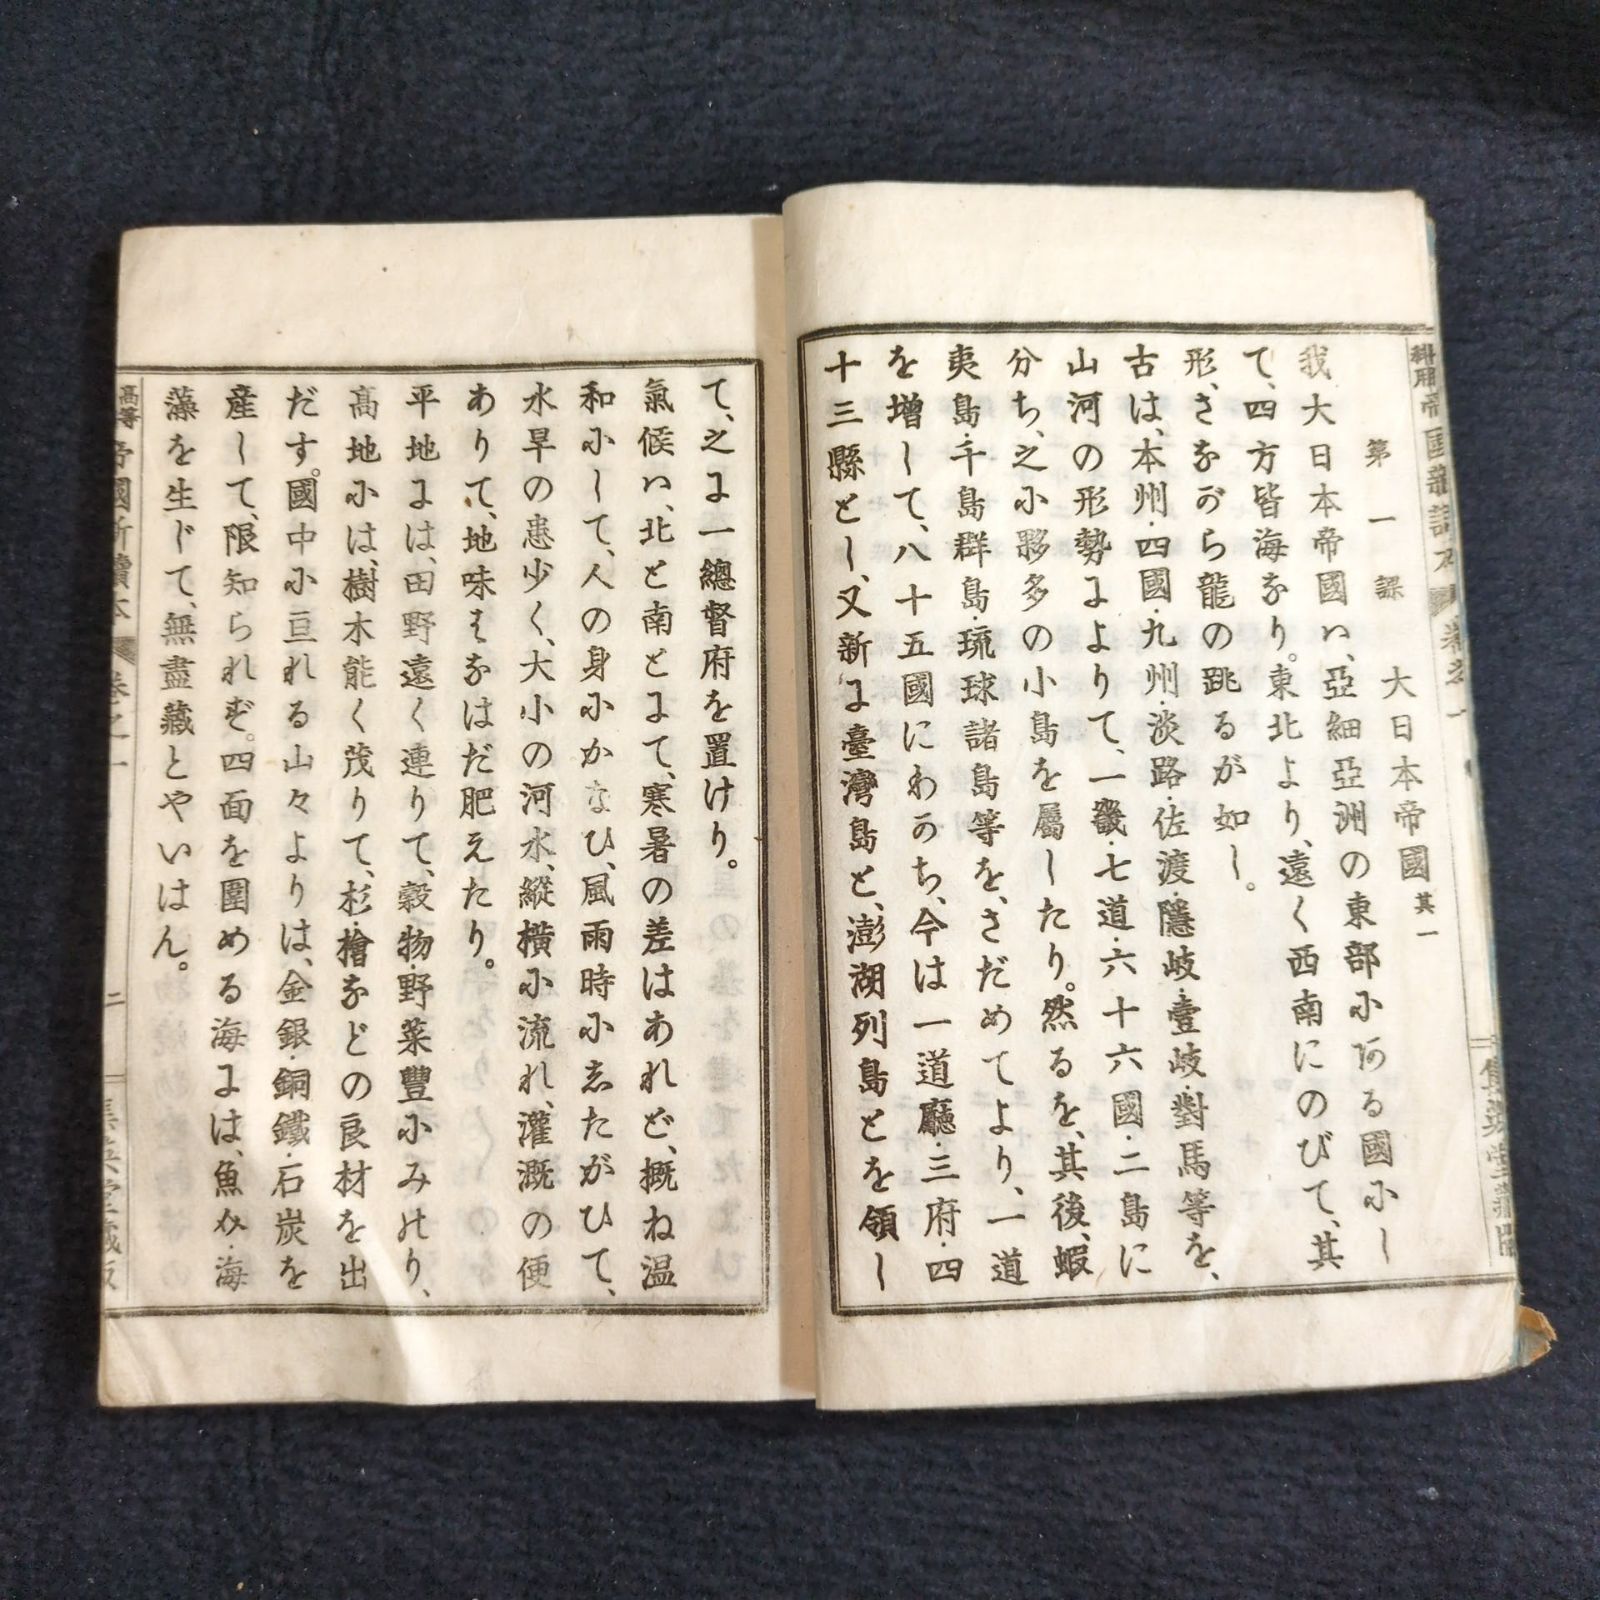 第一課　大日本帝國 其一
我大日本帝國ハ、亞細亞洲の東部にある國にし
て、四方皆海なり。東北より、遠く西南にのびて、其
形、さながら龍の跳るが如し。
古は、本州・四國・九州・淡路・佐渡・隱岐・壹岐・對馬等を、
山河の形勢によりて、一畿・七道・六十六國・二島に
分ち、之に夥多の小島を屬したり。然るを、其後、蝦
夷島・千島群島・琉球諸島等を、さだめてより、一道
を増して、八十五國にわかち、今は一道廳・三府・四
十三縣とし、又新に臺灣島と、澎湖列島とを領し
て、之に一總督府を置けり。
氣候ハ、北と南とにて、寒暑の差はあれど、概ね温
和にして、人の身にかなひ、風雨時にしたがひて、
水旱の患少く、大小の河水、縱横に流れ、灌漑の便
ありて、地味もなはだ肥えたり。
平地には、田野遠く連りて、穀物・野菜豐にみのり、
高地には、樹木能く茂りて、杉・檜などの良材を出
だす。國中に亘れる山々よりは、金銀・銅鐵・石炭を
産して、限知られず。四面を圍める海には、魚介・海
藻を生じて、無盡藏とやいはん。
高等 帝國新讀本 卷之一 二 集英堂藏版